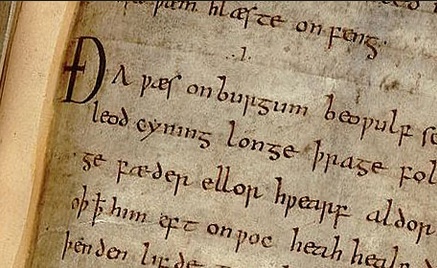 þam hlæste onfeng
.I.
ÐA ƿæs on burgum beoƿulf
leod cyning longe þrage fol
ge fæder ellor hƿearf aldor
oþ þ̵ him eft onƿoc heah heal
þenden lifde